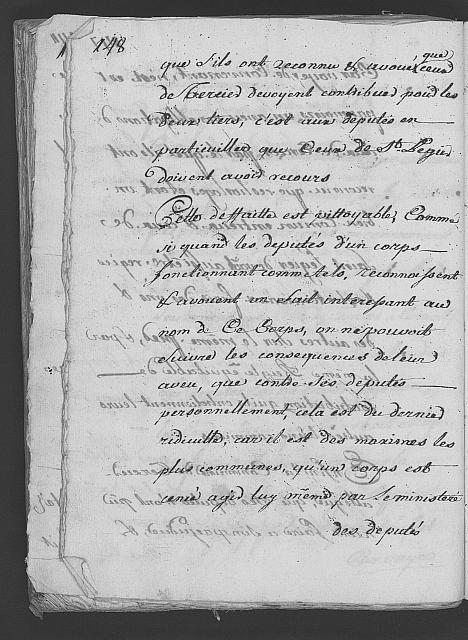 148
que s'ils ont reconnu & avoué que ceux
de Sercier devoyent contribuer pour les
deux tiers, c'est aux deputés en
particullier que Ceux de St. Legier
doivent avoir recours
Cette deffaitte est pittoyable, Comme
si quand les deputés d'un corps
fonctionnant comme tels, reconnoissent
& avouent un fait interessant au
nom de Ce Corps, on ne pouvoit
suivre les consequences de leur
aveu, que contre ses deputés
personnellement, cela est du dernier
ridiculle, car il est des maximes les
plus communes, qu'un corps est
censé agir luy même par le ministere
des deputés